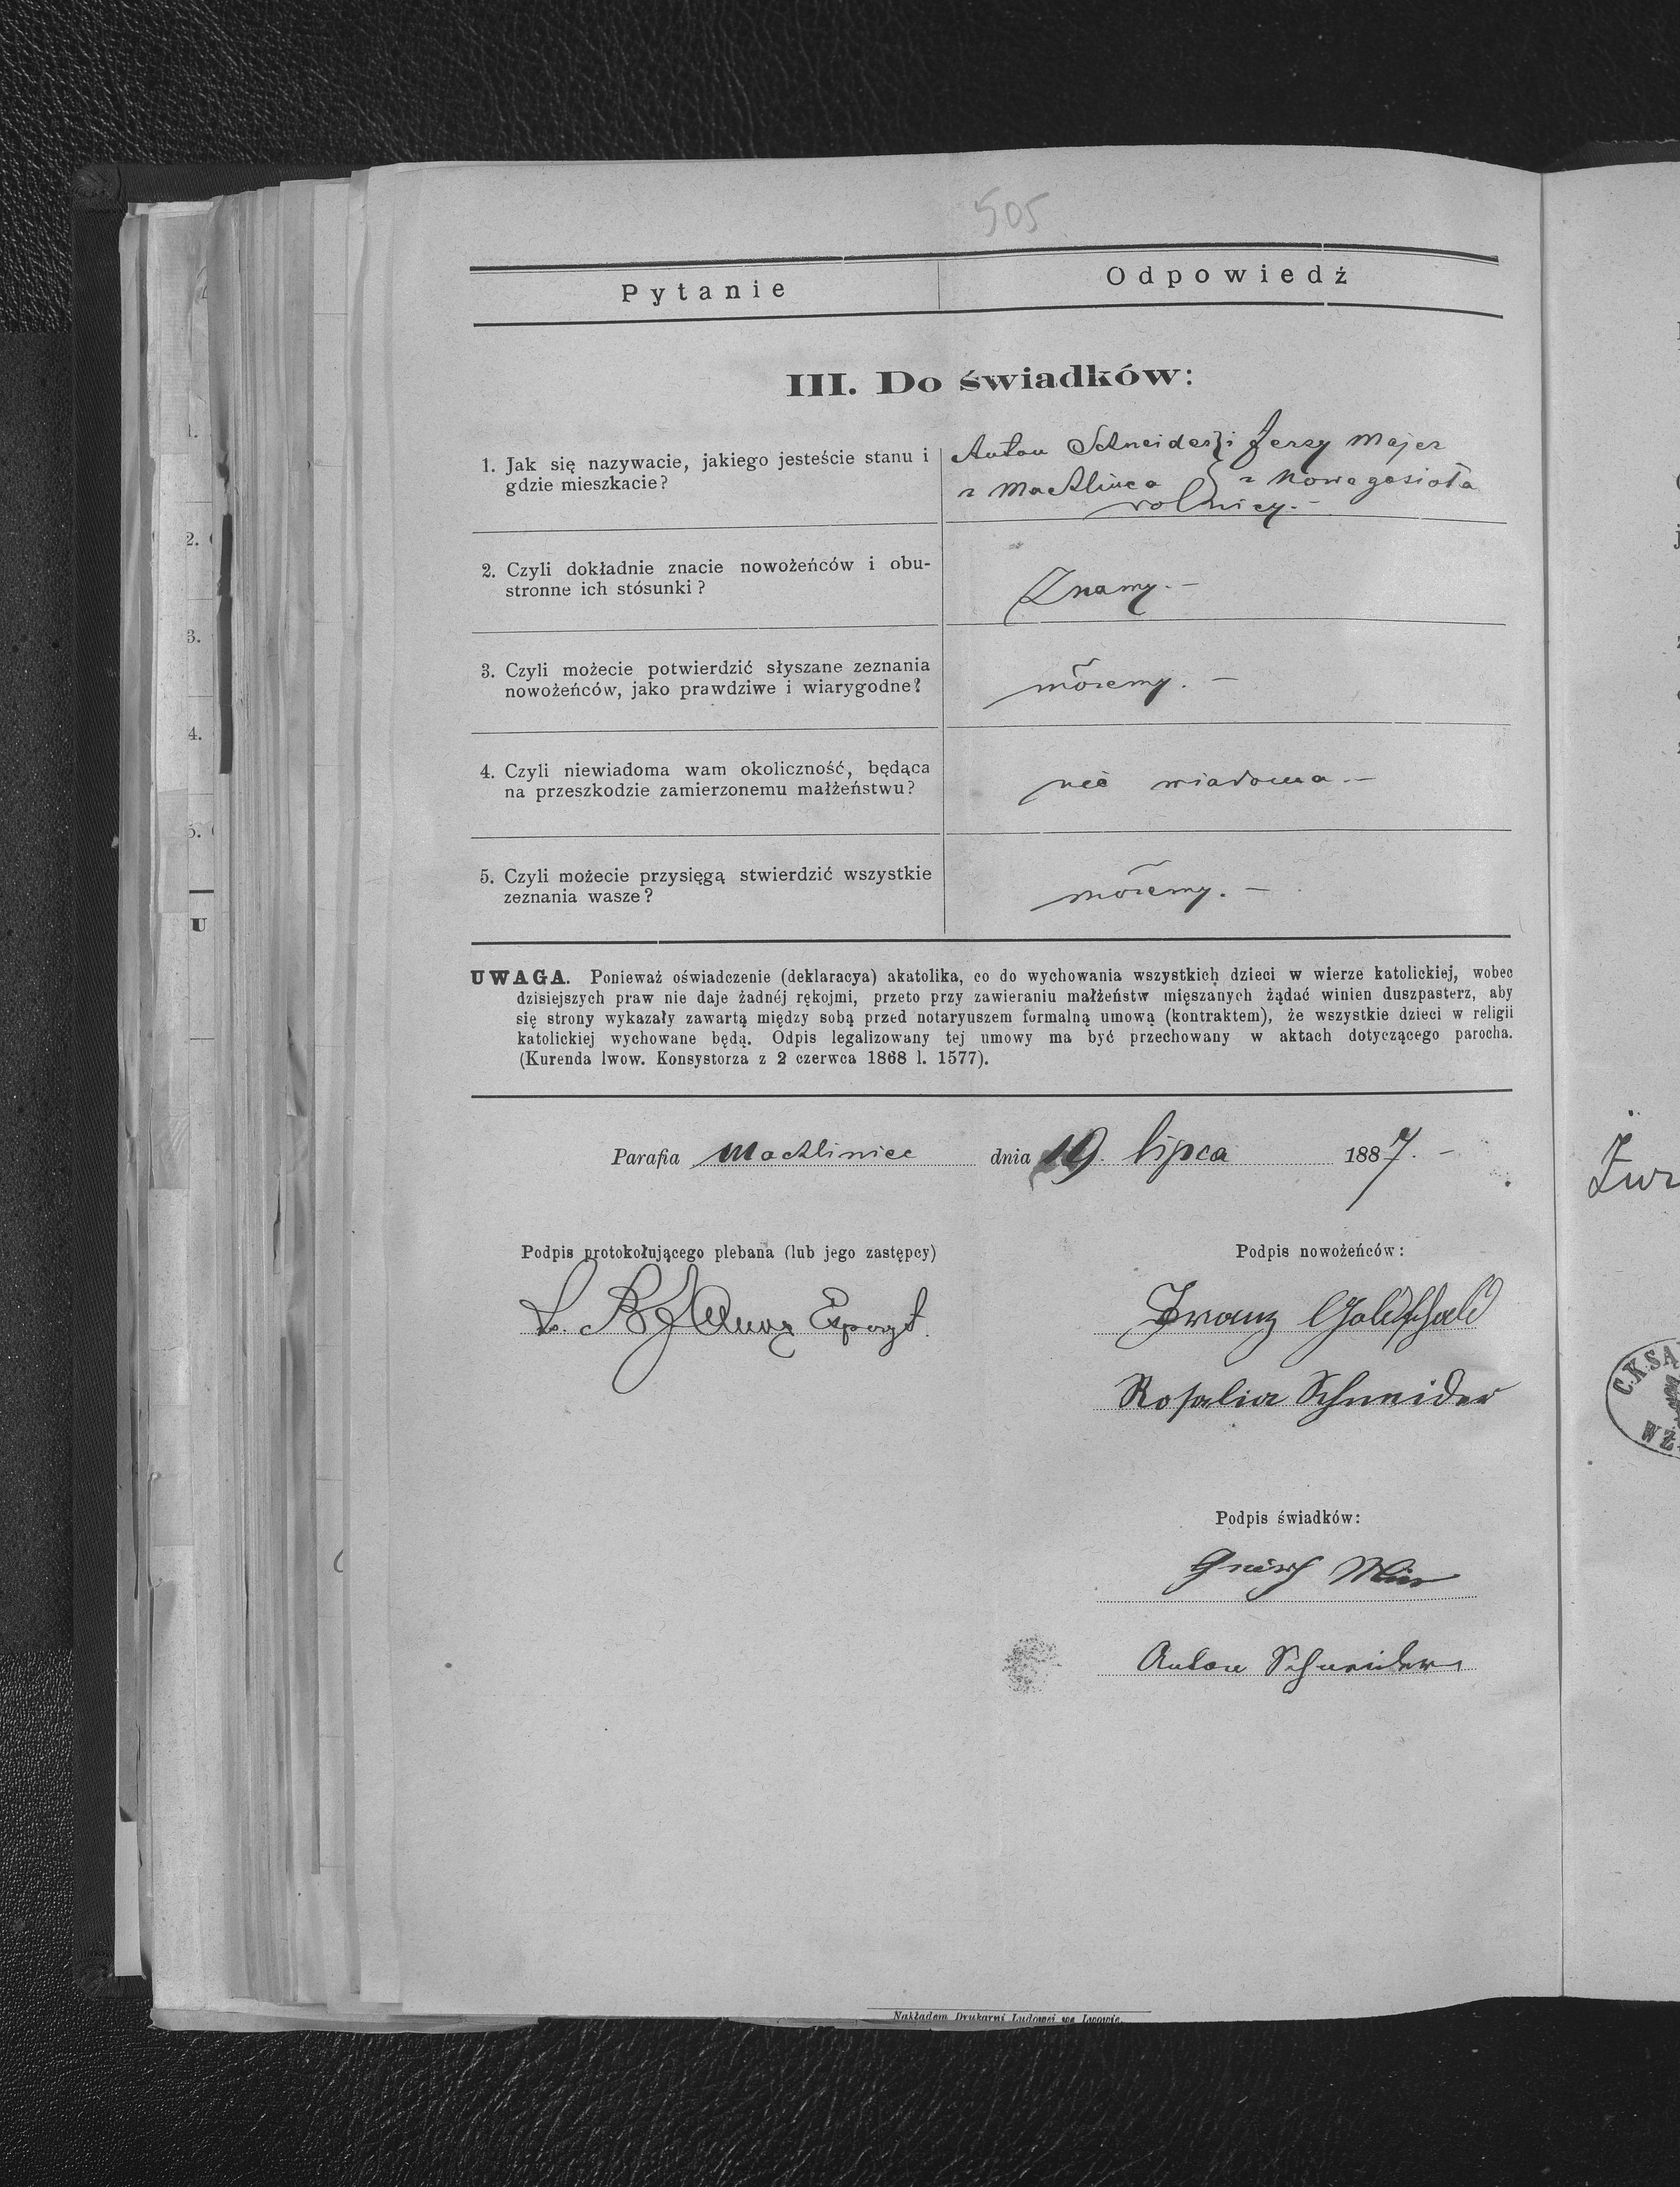 505
Pytanie Odpowiedź
III. Do świadków:
1. Jak się nazywacie, jakiego jesteście stanu i
gdzie mieszkacie?
Anton Schneider } i Jerzy Majer
z Machlińca } z Nowegosioła
rolnicy. –
2. Czyli dokładnie znacie nowożeńców i obu-
stronne ich stósunki?
Znamy. –
3. Czyli możecie potwierdzić słyszane zeznania
nowożeńców, jako prawdziwe i wiarygodne?
możemy. –
4. Czyli niewiadoma wam okoliczność, będąca
na przeszkodzie zamierzonemu małżeństwu?
nie wiadoma –
5. Czyli możecie przysięgą stwierdzić wszystkie
zeznania wasze?
możemy. –
UWAGA. Ponieważ oświadczenie (deklaracya) akatolika, co do wychowania wszystkich dzieci w wierze katolickiej, wobec
dzisiejszych praw nie daje żadnéj rękojmi, przeto przy zawieraniu małżeństw mięszanych żądać winien duszpasterz, aby
się strony wykazały zawartą między sobą przed notaryuszem formalną umową (kontraktem), że wszystkie dzieci w religii
katolickiej wychowane będą. Odpis legalizowany tej umowy ma być przechowany w aktach dotyczącego parocha.
(Kurenda lwow. Konsystorza z 2 czerwca 1868 l. 1577).
Parafia Machliniec dnia 19. lipca 1887. –
Podpis protokołującego plebana (lub jego zastępcy)
Podpis nowożeńców:
Franz Goldschald
Rosalia Schneider
Podpis świadków:
Anton Schneider
Nakładem Drukarni Ludowej we Lwowie.
1.
2.
3.
4.
5.
U
C.K.SĄ